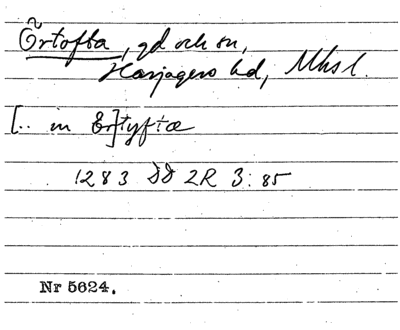 Örtofta, gd och sn,
Harjagers hd, Mhsl.
[.. in Er]tyftæ
1283 DD 2R 3:85
Nr 5624.